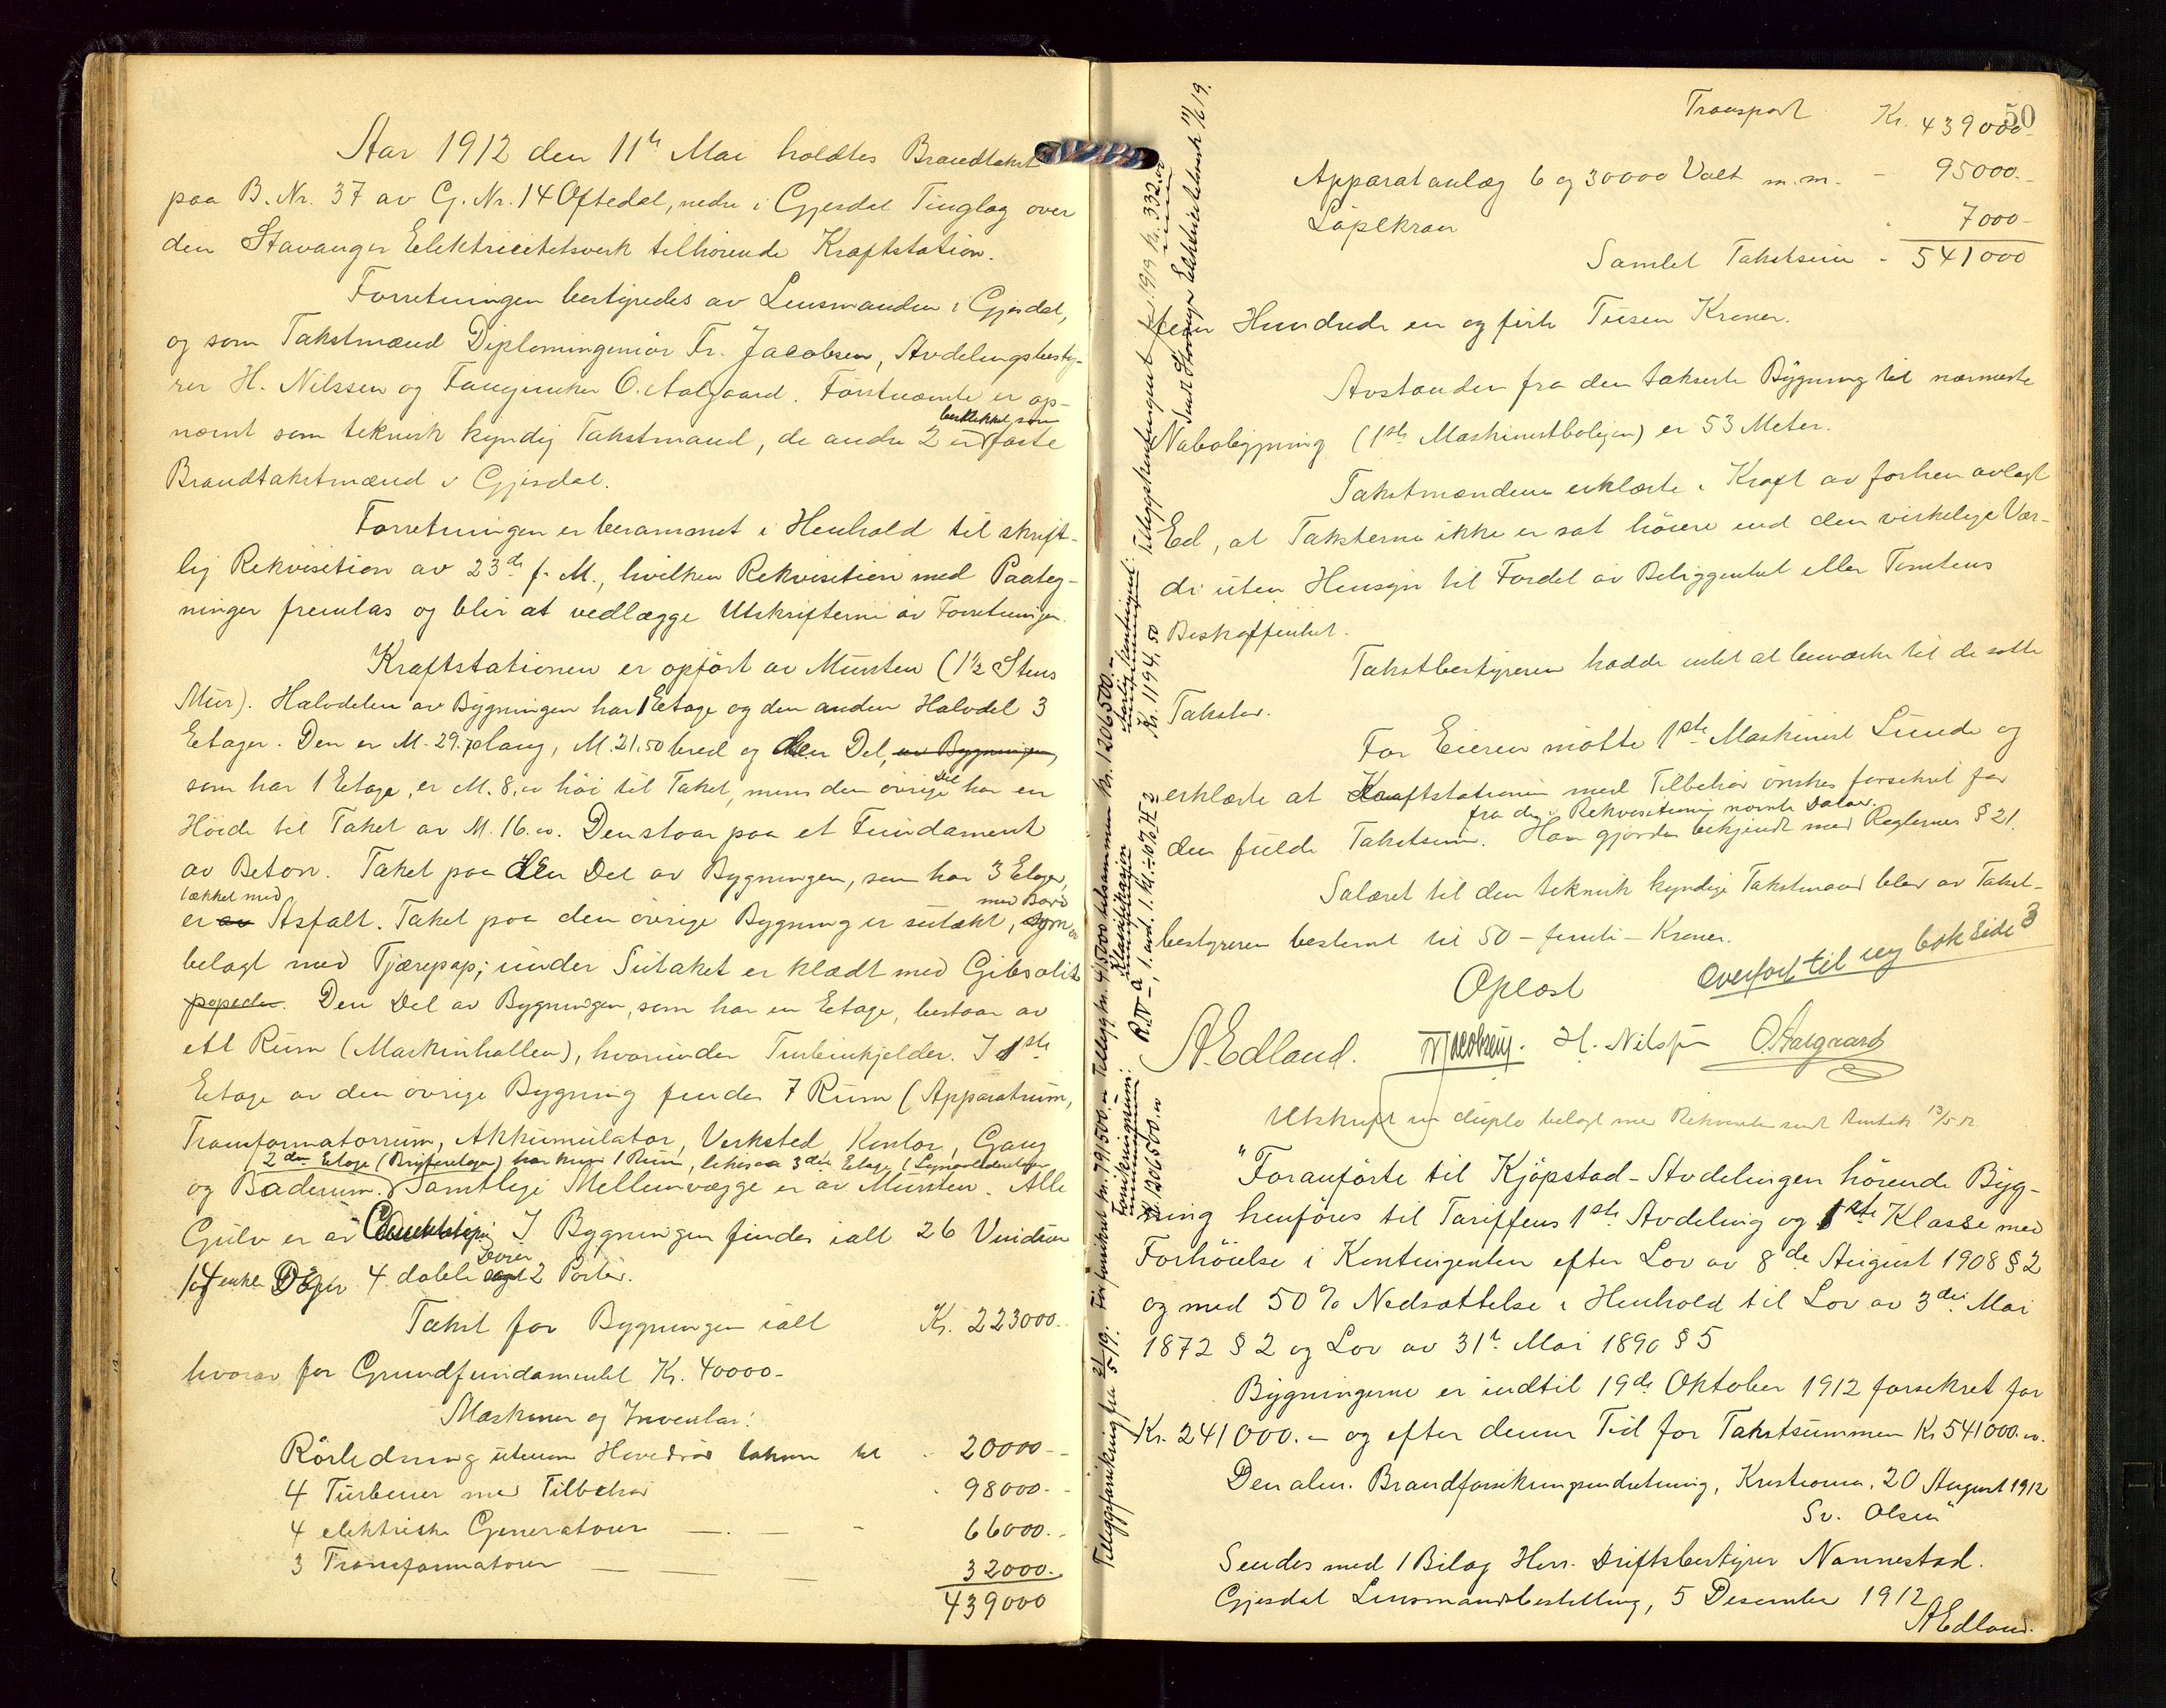 Aar 1912 den 11te Mai holdtes Brandtakst
paa B. Nr. 37 av G. Nr. 14 Oftedal, nedre i Gjesdal Tinglag over
den Stavanger Elektricitetsverk tilhörende Kraftstation.
Forretningen bestyredes av Lensmanden i Gjesdal,
og som Takstmænd Diplomingeniör Fr. Jacobsen, Avdelingsbesty-
rer H. Nilssen og O. Aalgaard. Förstnævnte er op-
nævnt som teknisk kyndig Takstmand, de andre 2 er beskikket som faste
Brandtakstmænd i Gjesdal.
Forretningen er berammet i Henhold til skrift-
lig Rekvisition av 23de f. M., hvilken Rekvisition med Paateg-
ninger fremlas og blir at vedlægge Utskrifterne av Forretningen.
Kraftstationen er opfört av Mursten (1½ Stens
Mur). Halvdelen av Bygningen har 1 Etage og den anden Halvdel 3
Etager. Den er M. 29.70 lang, M. 21.50 bred og den Del, av Bygningen,
som har 1 Etage, er M. 8.00 höi til Taket, mens den övrige Del har en
Höide til Taket av M. 16.00. Den staar paa et Fundament
av Beton. Taket paa den Del av Bygningen, som har 3 Etager,
er av tækket med Asfalt. Taket paa den övrige Bygning er sutækt med Bord, som er
belagt med Tjærepap; under Sutaket er klædt med Gibsolit
. Den Del av Bygningen, som har en Etage, bestaar av
ett Rum (Maskinhallen), hvorunder Turbinkjelder. I 1ste
Etage av den övrige Bygning findes 7 Rum (Apparatrum,
Transformatorrum, Akkumulator, Verksted, Kontor, Gang
og Baderum). 2den Etage har kun 1 Rum, likesaa 3die Etage
Samtlige Mellemvægge er av Mursten. Alle
Gulv er av I Bygningen findes ialt 26 Vinduer
14 enkle Dører 4 doble Dører og 2 Porter.
Takst for Bygningen ialt Kr. 223000.-
hvorav for Grundfundamentet Kr. 40000-
Maskiner og Inventar:
Rörledning utenom Hovedrör takser til - 20000.-
4 Turbiner med Tilbehör - 98000.-
4 elektriske Generatorer - 66000.-
3 Transformatorer - 32000.-
439000
50
Transport Kr. 439000.-
Apparatanlæg 6 og 30000 Volt m.m. - 95000.-
Löpekran - 7000-
Samlet Takstsum - 541000
fem Hundrede en og firti Tusen Kroner.
Avstanden fra den takserte Bygning til nærmeste
Nabobygning (1ste Maskinistboligen) er 53 Meter.
Takstmændene erklærte i Kraft av forhen avlagt
Eed, at Taksterne ikke er sat höiere end den virkelige Vær-
di uten Hensyn til Fordel av Beliggenhet eller Tomtens
Beskaffenhet.
Takstbestyreren hadde intet at bemærke til de satte
Takster.
For Eieren mötte 1ste Maskinist Lunde og
erklærte at Kraftstationen med Tilbehör önskes forsikret for
den fulde Takstsum fra den i Rekvisitionen nævnte Datoer. Han gjordes bekjendt med Reglernes § 21.
Salæret til den teknisk kyndige Takstmand blev av Takst-
bestyreren bestemt til 50 - femti - Kroner.
Oplæst
Overfört til ny bok side 3
A. Edland. Fr. Jacobsen. H. Nilssen O. Aalgaard
Utskrift in duplo belagt med Rekvisition sendt 13/5 12
"Foranförte til Kjöpstad-Avdelingen hörende Byg-
ning henföres til Tariffens 1ste Avdeling og 1ste Klasse med
Forhöielse i Kontingenten efter Lov av 8de August 1908 § 2
og med 50% Nedsættelse i Henhold til Lov av 3die Mai
1872 § 2 og Lov av 31te Mai 1890 § 5
Bygningerne er indtil 19de Oktober 1912 forsikret for
Kr. 241000.- og efter denne Tid for Takstsummen Kr. 541000.00.
Den alm. Brandforsikringsindretning, Kristiania, 20 August 1912
Sv. Olsen"
Sendes med 1 Bilag Herr Driftsbestyrer Nannestad.
Gjesdal Lensmandsbestilling, 5 Desember 1912
A Edland.
Tilleggsforsikring fra 21/5 19. Før forsikret kr. 791500.00 Tillegg kr. 415000 tilsammen kr. 1206500.-
Forsikringssum: Klassifikasjon Årlig kontingent: Tilleggskontingent for 1919 kr. 332.00
Kr. 1206500.00 R. IV a, 1. avd. 1. kl. Kr. 1194,50 Sendt Stavanger Elektricitetsverk 11/6 19.